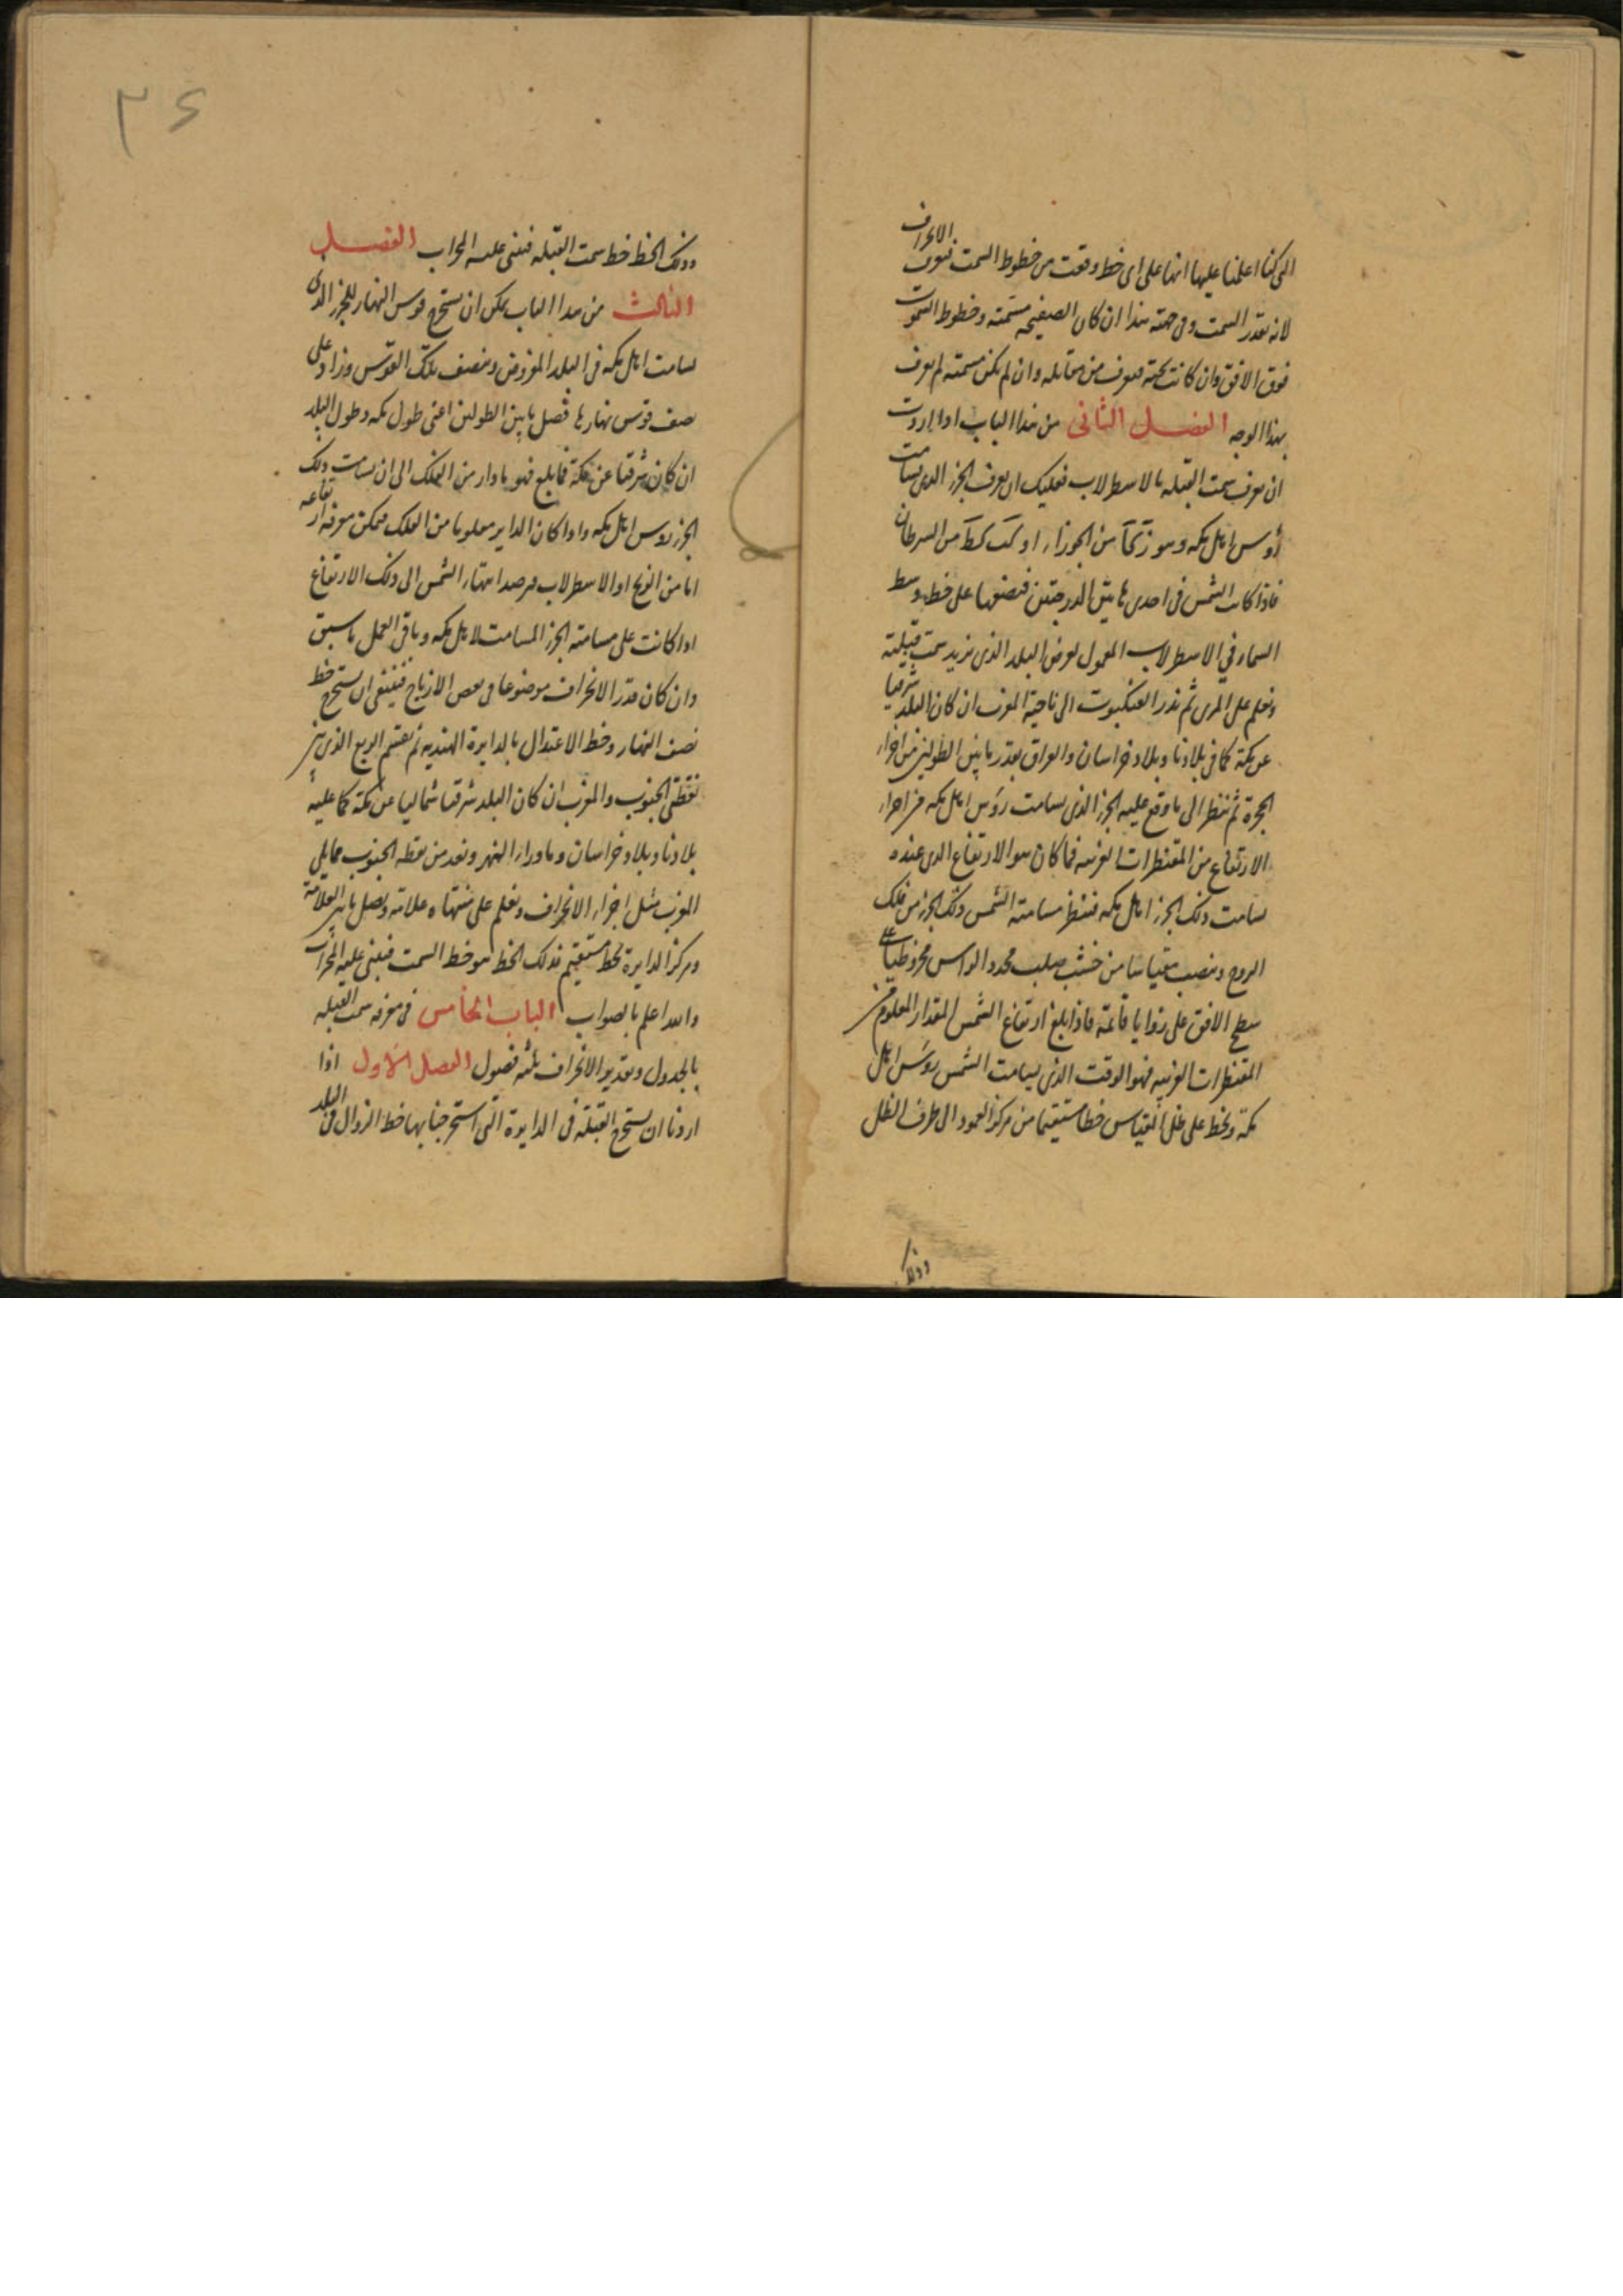 التي كنا اعلمنا عليها انها على اى خط وقعت من خطوط السمت فيعرف الانحراف
لانه بقدر السمت وفى جهته هذا ان كان الصفيحه مسمته وخطوط السموت
فوق الافق وان كانت تحته فيعرف من مقابله وان لم يكن مسمته لم يعرف
بهذا الوجه الفصل الثانى من هذا الباب اذا اردت
ان تعرف سمت القبله بالاسطرلاب فعليك ان تعرف الجزء الذى يسامت
رؤس اهل مكه وهو ز كا من الجوزاء او كب كط من السرطان
فاذا كانت الشمس فى احدى هاتين الدرجتين فتضعها على خط وسط
السماء في الاسطرلاب المعمول لعرض البلد الذى نريد سمت قبلته
ونعلم على المرى ثم ندر العنكبوت الى ناحية المغرب ان كان البلد شرقيا
عن مكة كما فى بلادنا وبلاد خراسان والعراق بقدر ما بين الطولين من اجزاء
الحجرة ثم ننظر الى ما وقع عليه الجزء الذى يسامت رؤس اهل مكه من اجزاء
الارتفاع من المقنطرات الغربيه فما كان هو الارتفاع الذى عنده
يسامت ذلك الجزء اهل مكه فننظر مسامتة الشمس ذلك الجزء من فلك
البروج وننصب مقياسا من خشب صلب محدد الراس مخروطيا على
سطح الافق على زوايا قائمة فاذا بلغ ارتفاع الشمس المقدار المعلوم من
المقنطرات الغربيه فهو الوقت الذى يسامت الشمس رؤس اهل
مكة ونخط على ظل المقياس خطا مستقيما من مركز العمود الى طرف الظل
وذلك
٣٤
وذلك الخط خط سمت القبله فنبنى عليه المحراب الفصل
الثالث من هذا الباب يمكن ان نستخرج قوس النهار للجزء الذى
يسامت اهل مكه فى البلد المفروض وننصف تلك القوس وزاد على
نصف قوس نهارها فصل ما بين الطولين اعنى طول مكه وطول البلد
ان كان شرقيا عن مكة فما بلغ فهو ما دار من الفلك الى ان يسامت ذلك
الجزء روس اهل مكه واذا كان الداير معلوما من الفلك فيمكن معرفة ارتفاعه
اما من الزيج او الاسطرلاب فرصد انتهاء الشمس الى ذلك الارتفاع
اذا كانت على مسامتة الجزء المسامت لاهل مكه وباقى العمل ما سبق
وان كان قدر الانحراف موضوعا فى بعض الازياج فينبغى ان نستخرج خط
نصف النهار وخط الاعتدال بالدايرة الهنديه ثم نقسم الربع الذى بين
نقطتى الجنوب والمغرب ان كان البلد شرقيا شماليا عن مكة كما عليه
بلادنا وبلاد خراسان وماوراء النهر ونعد من نقطه الجنوب مما يلى
المغرب مثل اجزاء الانحراف ونعلم على منتهاه علامة ونصل ما بين العلامة
ومركز الدايرة بخط مستقيم فذلك الخط هو خط السمت فنبنى عليه المحراب
والله اعلم بالصواب الباب الخامس فى معرفة سمت القبله
بالجدول وتقدير الانحراف ثلثه فصول الفصل الاول اذا
اردنا ان نستخرج القبلة فى الدايرة التى استخرجنا بها خط الزوال فى البلد